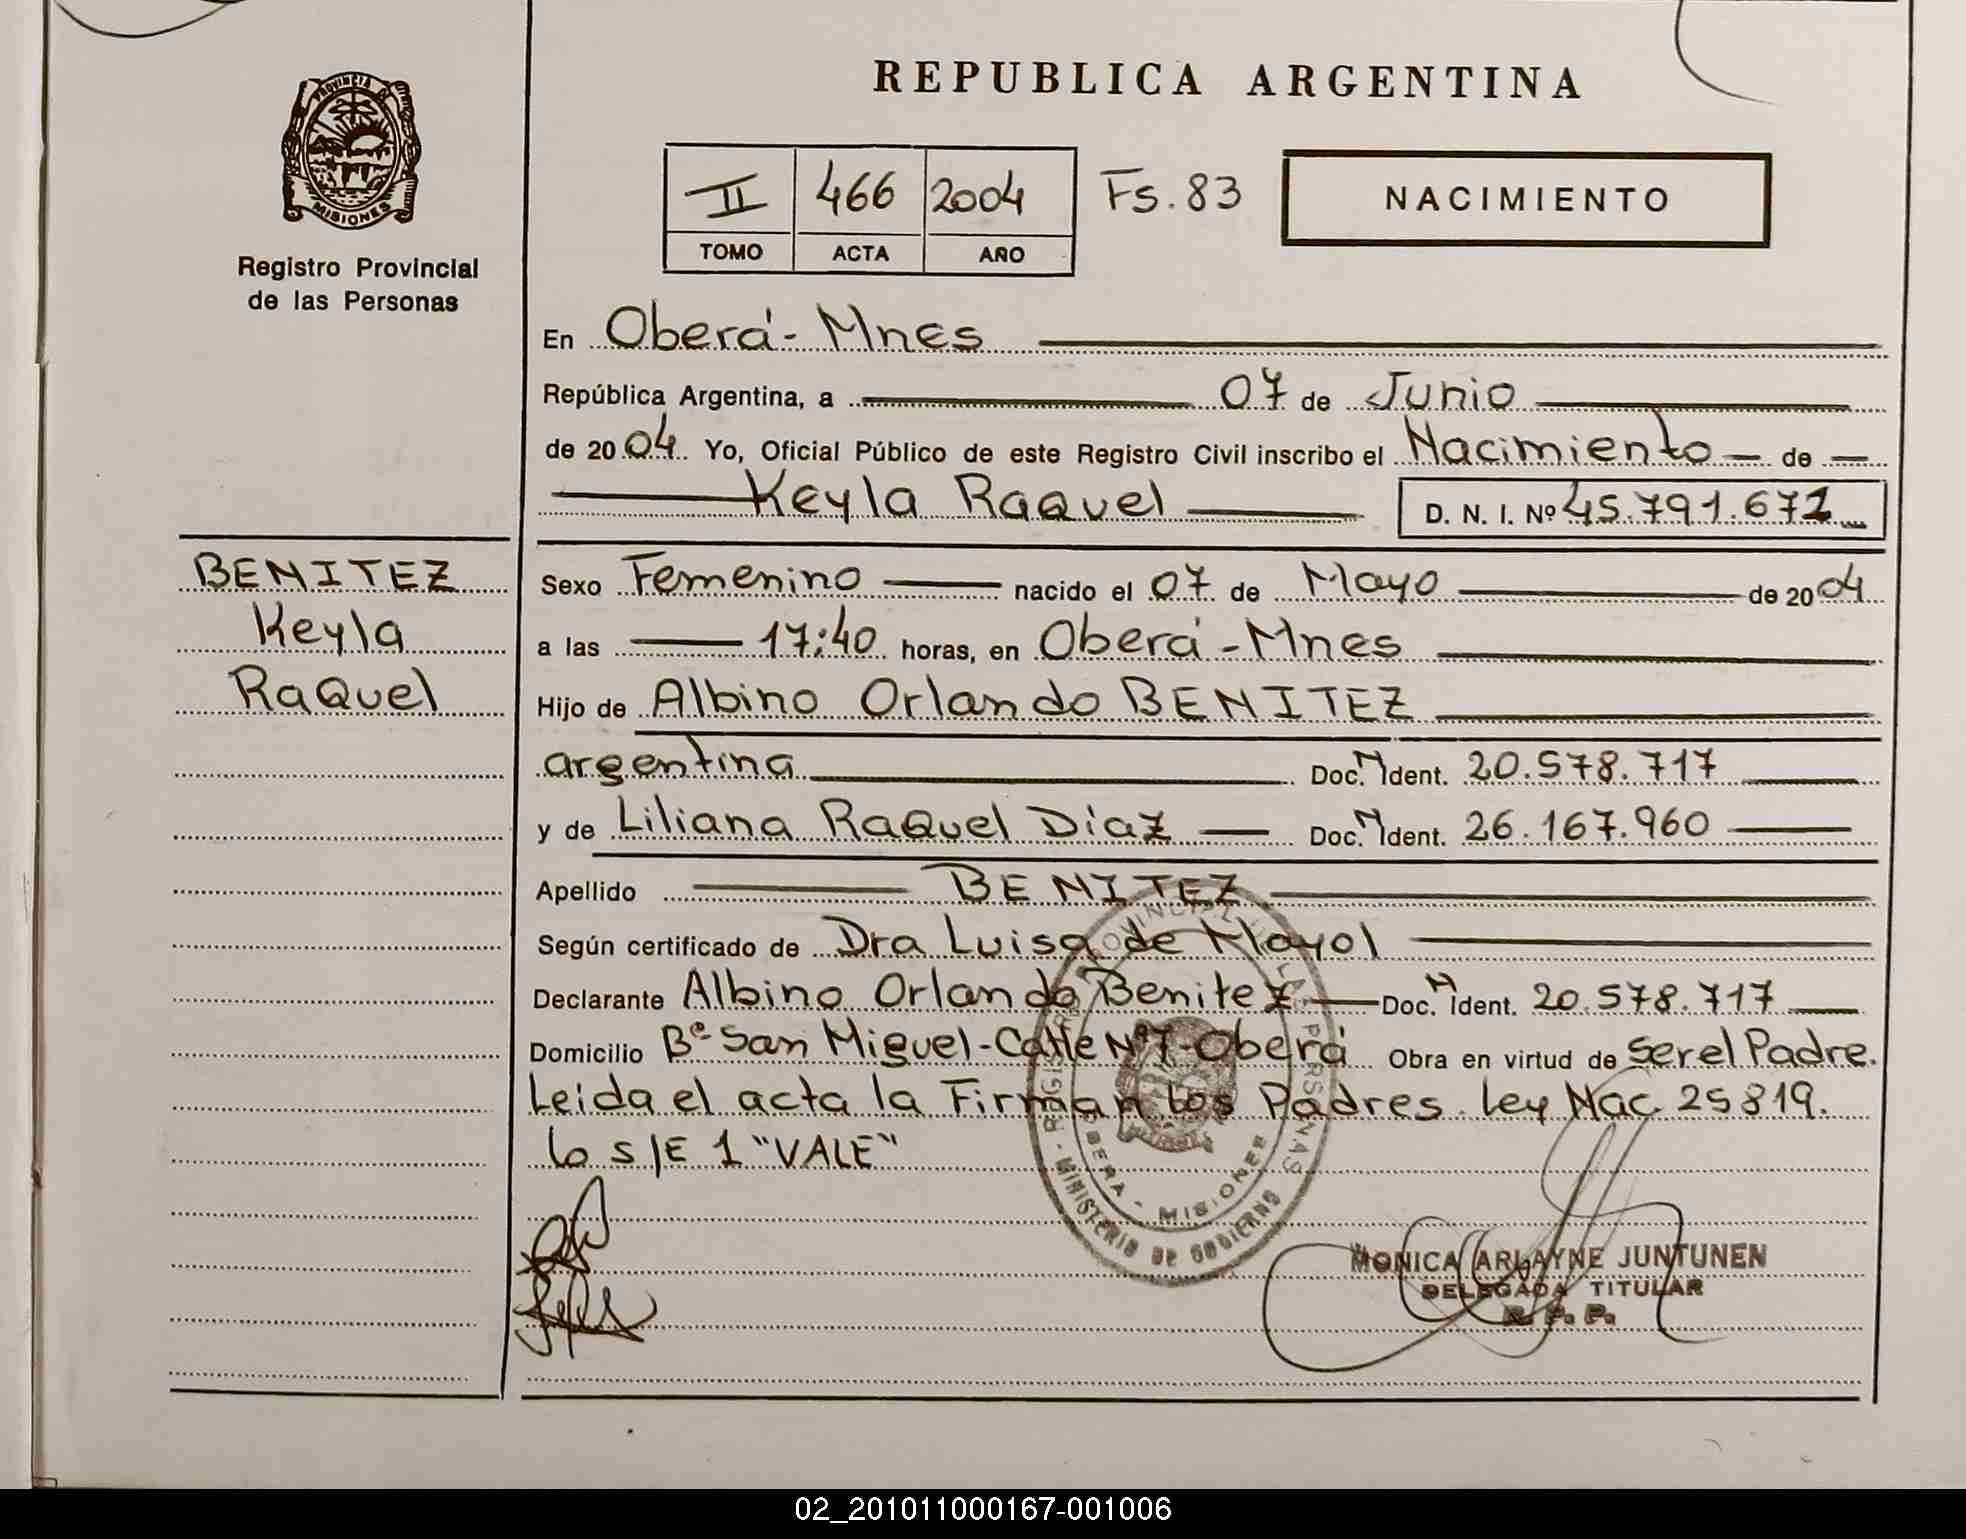 REPUBLICA ARGENTINA
PROVINCIA DE
MISIONES
Registro Provincial
de las Personas
II 466 2004 Fs. 83
TOMO ACTA AÑO
NACIMIENTO
En Oberá - Mnes
República Argentina, a 07 de Junio
de 2004 Yo, Oficial Público de este Registro Civil inscribo el Nacimiento de
Keyla Raquel D. N. I. Nº 45.791.671
BENITEZ
Keyla
Raquel
Sexo Femenino nacido el 07 de Mayo de 2004
a las 17:40 horas, en Oberá - Mnes
Hijo de Albino Orlando BENITEZ
argentina Doc. N Ident. 20.578.717
y de Liliana Raquel Díaz Doc. N Ident. 26.167.960
Apellido BENITEZ
Según certificado de Dra Luisa de Mayol
Declarante Albino Orlando Benitez Doc. N Ident. 20.578.717
Domicilio Bº San Miguel - Calle Nº 7 - Oberá Obra en virtud de Ser el Padre.
Leida el acta la Firman los Padres. Ley Nac 25819.
lo S/E 1 "VALE"
REGISTRO PROVINCIAL DE LAS PERSONAS
OBERA - MISIONES
MINISTERIO DE GOBIERNO
MONICA ARLAYNE JUNTUNEN
DELEGADA TITULAR
R. P. P.
02_201011000167-001006